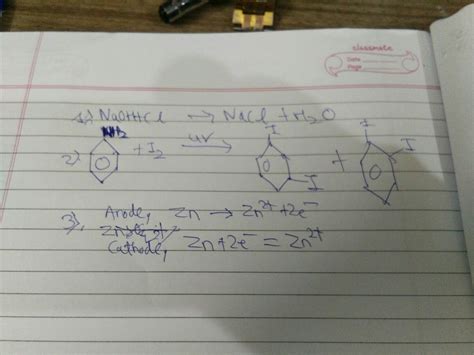 classmate
Date
Page
1) NaOH+HCl → NaCl + H2O
NH2
2) + I2 uv → I I + I I
3) Anode, Zn → Zn2+ + 2e-
Cathode, Zn+2e- = Zn2+